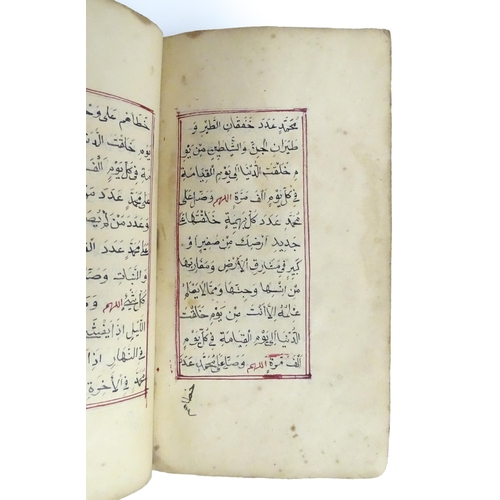 محمد عدد خفقان الطير و
طيران الجن والشياطين من يو
م خلقت الدنيا الى يوم القيامة
في كل يوم الف مرة اللهم وصل على
محمد عدد كل بهيمة خلقتها على
جديد ارضك من صغير او
كبير في مشارق الأرض ومغاربها
من انسها وجنها ومما لا يعلم
علمه الا انت من يوم خلقت
الدنيا الى يوم القيامة في كل يوم
الف مرة اللهم وصل على محمد عدد
خطاهم
خطاهم على
يوم خلقت الدنيا
في كل يوم الف
على محمد عدد
وعدد من لم
على محمد عدد
والنبات
كل شئ اللهم
الليل اذا يغشى
في النهار اذا
محمد في الاخرة